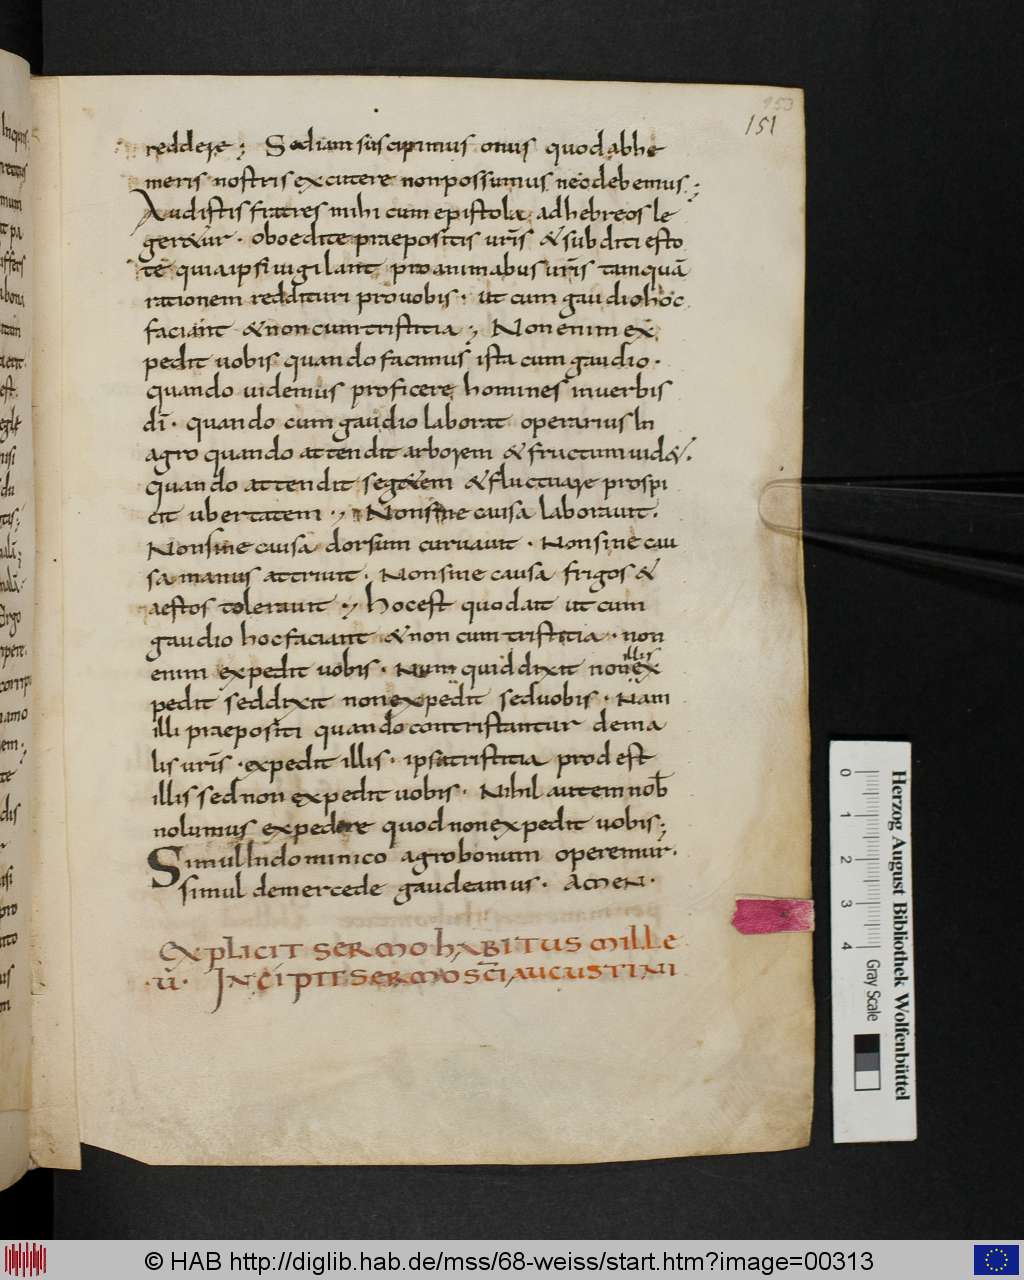 953
151
reddere; Sed iam suscipimus onus quod ab he
meris nostris excutere non possumus nec debemus;
Audistis fratres mihi cum epistola ad hebreos le
geretur. oboedite praepositis uris & subditi esto
te quia ipsi uigilant pro animabus uris tamquā
rationem reddituri pro uobis. ut cum gaudio hoc
faciant & non cum tristitia; Non enim ex
pedit uobis quando facimus ista cum gaudio.
quando uidemus proficere homines in uerbis
dī. quando cum gaudio laborat operarius In
agro quando attendit arborem & fructum uid&.
Quando attendit seg&em & fluctuare prospi
cit ubertatem; Non sine causa laborauit.
Non sine causa dorsum curuauit. Non sine cau
sa manus attriuit. Non sine causa frigos &
aestos tolerauit; hoc est quod ait ut cum
gaudio hoc faciant & non cum tristitia. non
enim expedit uobis. Num quid dixit non illis ex
pedit sed dixit non expedit sed uobis. Nam
illi praepositi quando contristantur de ma
lis uris. expedit illis. ipsa tristitia prodest
illis sed non expedit uobis. Nihil autem nob
nolumus expedere quod non expedit uobis;
Simul In dominico agro bonum operemur.
simul de mercede gaudeamus. AMEN.
EXPLICIT SERMO hABITUS MILLE
.ū. INCIPIT SERMO SCI AUGUSTINI
Herzog August Bibliothek Wolfenbüttel
0 1 2 3 4 Gray Scale
© HAB http://diglib.hab.de/mss/68-weiss/start.htm?image=00313